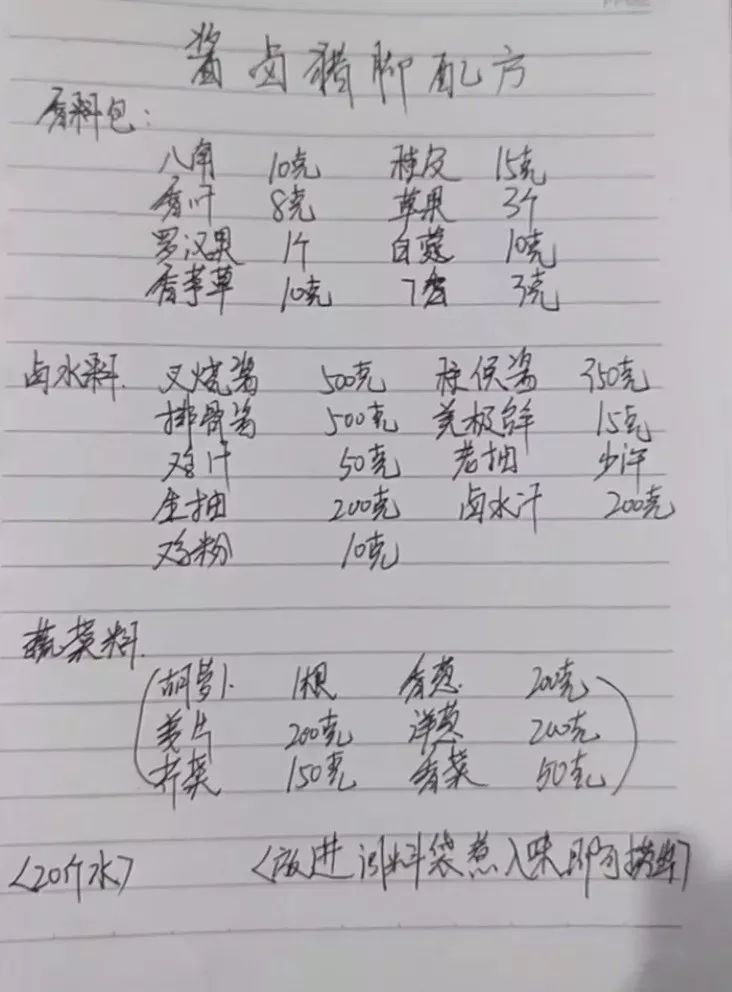 酱卤猪脚配方
香料包：
八角 10克 桂皮 15克
香叶 8克 草果 3个
罗汉果 1个 白蔻 10克
香茅草 10克 丁香 3克
卤水料. 叉烧酱 500克 柱侯酱 350克
排骨酱 500克 美极鲜 15克
鸡汁 50克 老抽 少许
生抽 200克 卤水汁 200克
鸡粉 10克
蔬菜料.
(胡萝卜. 1根 香葱. 200克
姜片 200克 洋葱 200克
芹菜 150克 香菜 50克)
〈20斤水〉 〈放进调料袋煮入味即可捞出〉